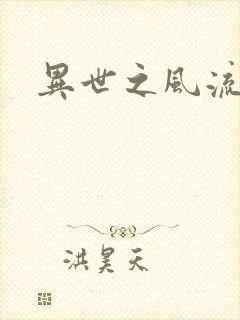 異世之風流
洪昊天